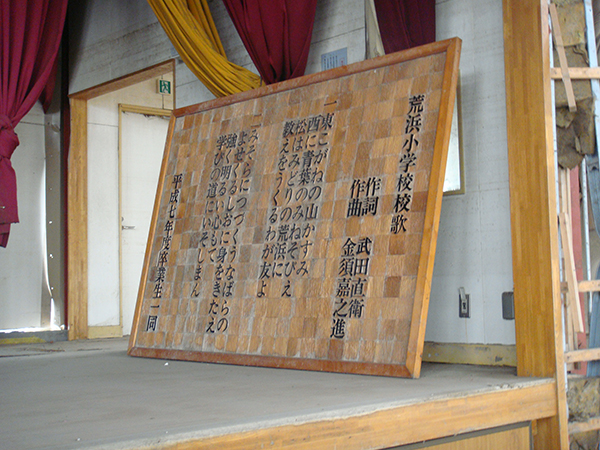 荒浜小学校校歌
作詞 武田直衛
作曲 金須嘉之進
一 東こがねの山かすみ
西に青葉のみねそびえ
松はみどりの荒浜に
教えをうくるわが友よ
二 みそらにつづくうなばらの
よせくるしおに身をきたえ
強く明るく心もて
学びの道にいそしまん
平成七年度卒業生一同